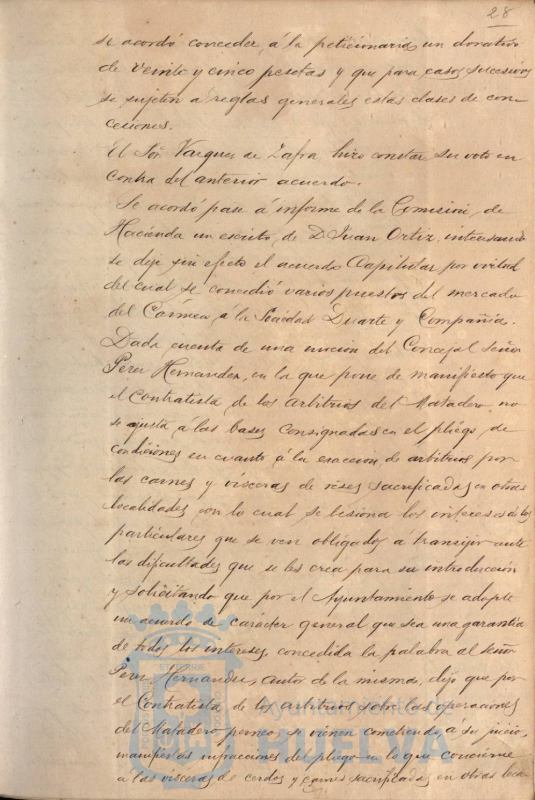 28
se acordó conceder, á la peticionaria, un donativo
de veinte y cinco pesetas y que para casos sucesivos
se sujeten a reglas generales estas clases de con-
cesiones.
El Sõr Vazquez de Zafra hizo constar su voto en
contra del anterior acuerdo.
Se acordó pase á informe de la Comisión, de
Hacienda un escrito, de D. Juan Ortiz, interesando
se deje sin efecto el acuerdo Capitular por virtud
del cual se concedió varios puestos del mercado
del Cármen, a la Sociedad Duarte y Compañia.
Dada cuenta de una mocion del Concejal Señor
Perez Hernandez, en la que pone de manifiesto que
el Contratista, de los arbitrios del Matadero, no
se ajusta, á las bases consignadas en el pliego, de
condiciones en cuanto á la exaccion, de arbitrios por
las carnes y visceras de reses sacrificadas en otras
localidades, con lo cual se lesiona los intereses de los
particulares que se ven obligados a transijir ante
las dificultades que se les crea para su introducción
y solicitando que por el Ayuntamiento se adopte
un acuerdo de carácter general que sea una garantia
de todos los intereses, concedida la palabra al señor
Perez Hernandez, autor de la misma, dijo que por
el Contratista, de los arbitrios sobre las operaciones
del Matadero, se vienen cometiendo, á su juicio,
manifiestas infracciones del pliego en lo que concierne
á las visceras de cerdos y carnes sacrificadas, en otras loca-
Ayuntamiento de
HUELVA